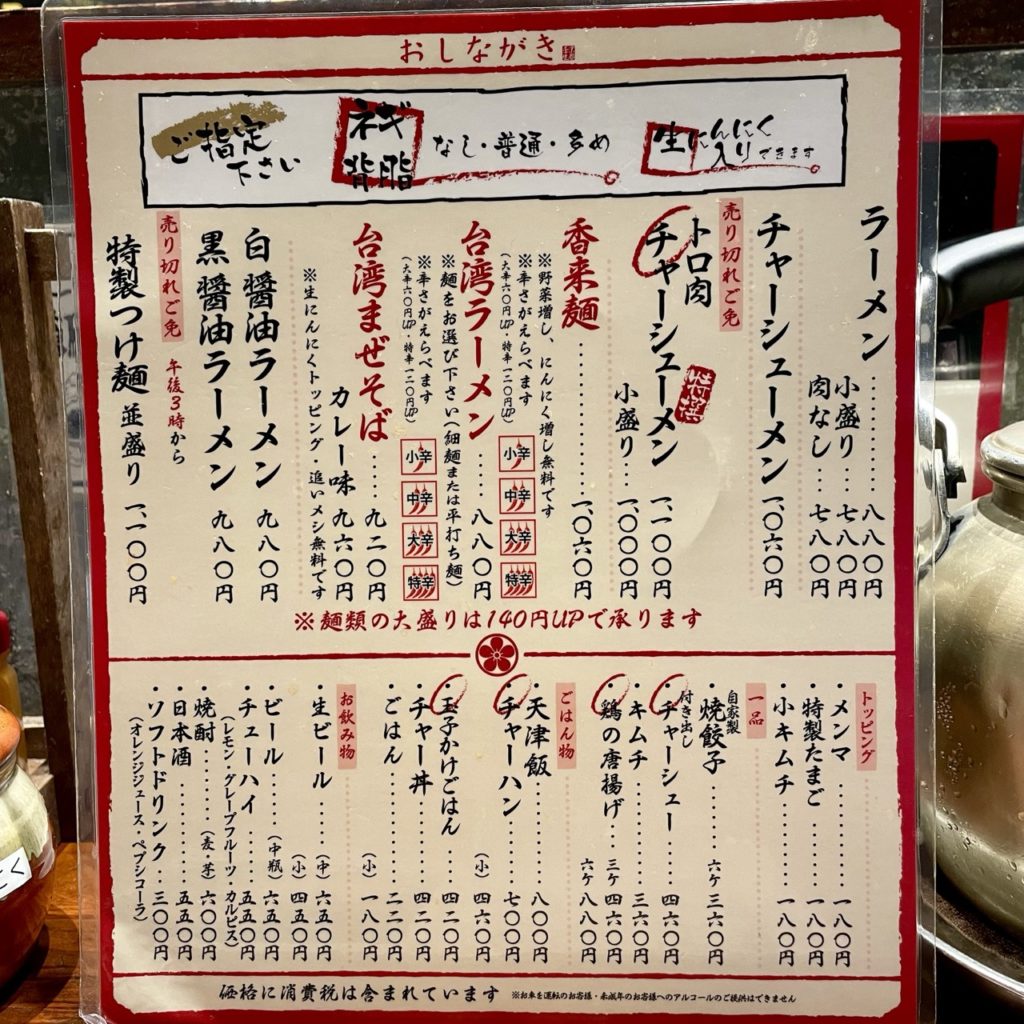 おしながき
ご指定
下さい
ネギ
背脂
なし・普通・多め
生にんにく
入りできます
ラーメン………八八〇円
小盛り…七八〇円
肉なし…七八〇円
チャーシューメン 一、〇六〇円
売り切れご免
トロ肉
チャーシューメン 一、一〇〇円
特撰
小盛り…一、〇〇〇円
香来麺………一、〇六〇円
※野菜増し、にんにく増し無料です
※辛さがえらべます
(大辛六〇円UP・特辛一二〇円UP)
小辛
中辛
大辛
特辛
台湾ラーメン……八八〇円
※麺をお選び下さい(細麺または平打ち麺)
※辛さがえらべます
(大辛六〇円UP・特辛一二〇円UP)
小辛
中辛
大辛
特辛
台湾まぜそば……九二〇円
カレー味 九六〇円
※生にんにくトッピング・追いメシ無料です
白醤油ラーメン 九八〇円
黒醤油ラーメン 九八〇円
売り切れご免
午後3時から
特製つけ麺 並盛り 一、一〇〇円
※麺類の大盛りは140円UPで承ります
トッピング
・メンマ………一八〇円
・特製たまご……一八〇円
・小キムチ………一八〇円
一品
自家製
・焼餃子………六ケ 三六〇円
付き出し
・チャーシュー……四六〇円
・キムチ………三六〇円
・鶏の唐揚げ… 三ケ 四六〇円
六ケ 八八〇円
ごはん物
・天津飯………八〇〇円
・チャーハン……七〇〇円
(小)四六〇円
・玉子かけごはん…四二〇円
・チャー丼………四二〇円
・ごはん………二二〇円
(小)一八〇円
お飲み物
・生ビール……(中)六五〇円
(小)四五〇円
・ビール………(中瓶)六五〇円
・チューハイ………五五〇円
(レモン・グレープフルーツ・カルピス)
・焼酎………(麦・芋)六〇〇円
・日本酒………五五〇円
・ソフトドリンク…三〇〇円
(オレンジジュース・ペプシコーラ)
価格に消費税は含まれています
※お車を運転のお客様・未成年のお客様へのアルコールのご提供はできません